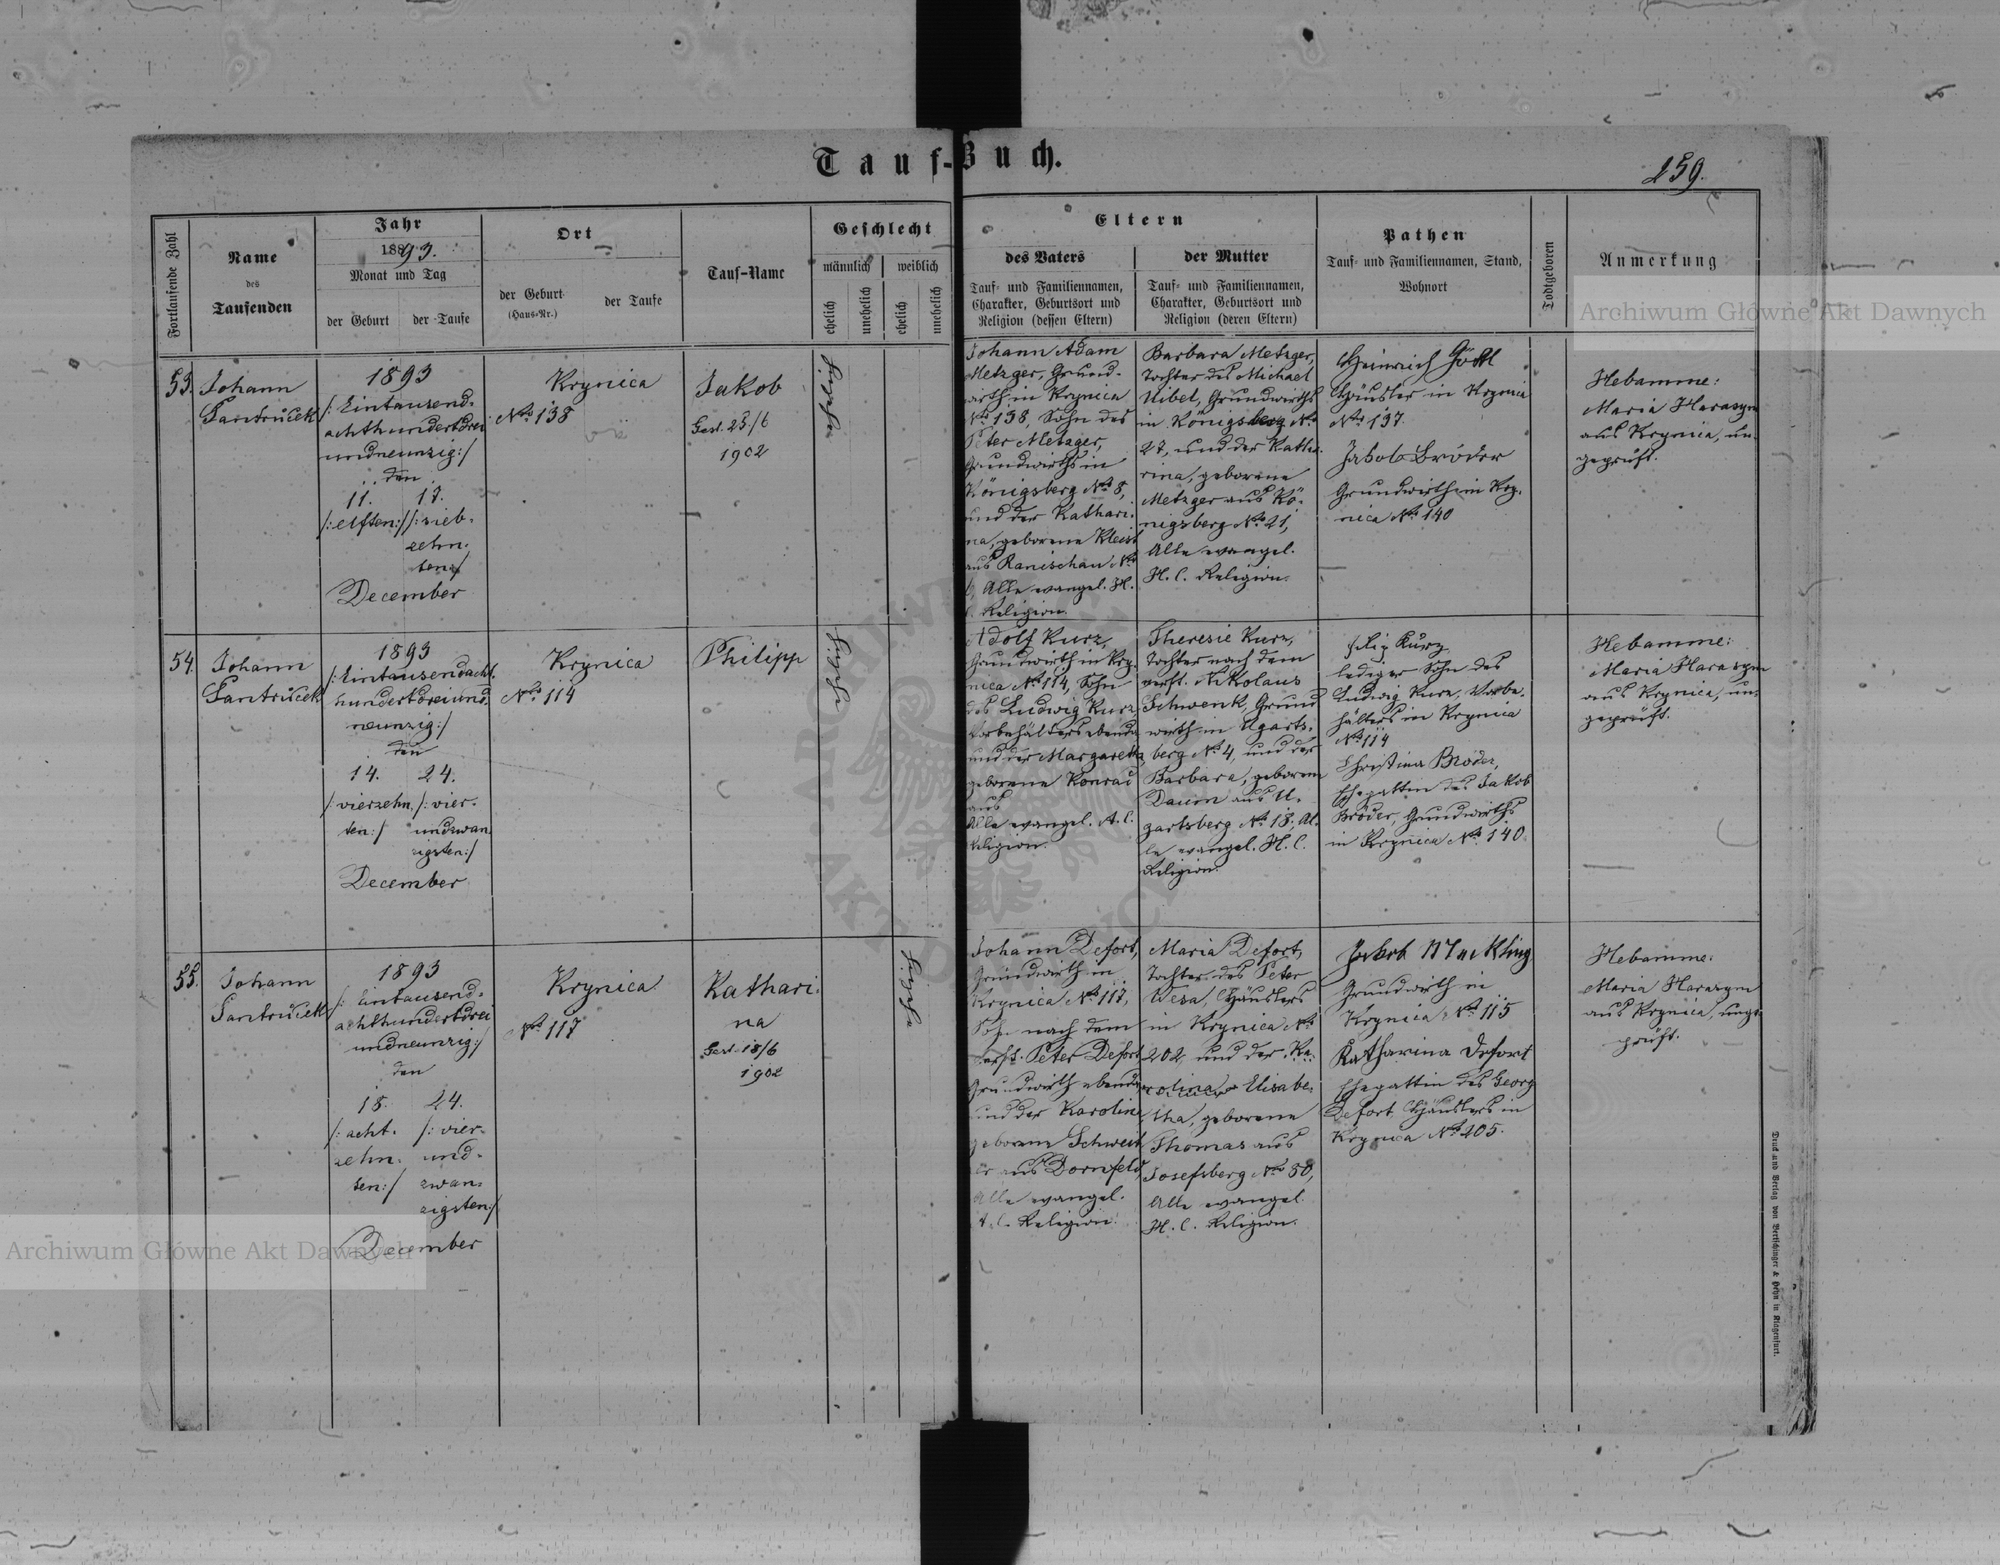 Tauf-Buch.
159.
Fortlaufende Zahl
Name
des
Taufenden
Jahr
1893.
Monat und Tag
der Geburt
der Taufe
Ort
der Geburt
(Haus-Nr.)
der Taufe
Tauf-Name
Geschlecht
männlich
weiblich
ehelich
unehelich
ehelich
unehelich
Eltern
des Vaters
Tauf- und Familiennamen,
Charakter, Geburtsort und
Religion (dessen Eltern)
der Mutter
Tauf- und Familiennamen,
Charakter, Geburtsort und
Religion (deren Eltern)
Pathen
Tauf- und Familiennamen, Stand,
Wohnort
Todtgeboren
Anmerkung
53.
Johann
1893
/: Eintausend-
achthundertdrei
undneunzig :/
den
11. 17.
/: elften :/ /: sieb-
zehn-
ten :/
December
Krynica
Nro 138
Jakob
Gest. 23/6
1902
ehelich
Johann Adam
Metzger, Grund-
wirth in Krynica
Nro 138, Sohn des
Peter Metzger,
Grundwirths in
Königsberg Nro 8,
und der Kathari-
na, geborene Kleist
aus Ranischau Nro
Alle evangel. H.
C. Religion.
Barbara Metzger,
Tochter des Michael
Uibel, Grundwirths
in Königsberg Nro
27, und der Katha-
rina, geborene
Metzger aus Kö-
nigsberg Nro 21,
Alle evangel.
H. C. Religion.
Heinrich
Häusler in Krynica
Nro 137.
Jakob Bröder
Grundwirth in Kry-
nica Nro 140
Hebamme:
Maria Harasym
aus Krynica, un-
geprüft.
54.
Johann
1893
/: Eintausendacht-
hundertdreiund-
neunzig :/
den
14. 24.
/: vierzehn- /: vier-
ten :/ undzwan-
zigsten :/
December
Krynica
Nro 114
Philipp
ehelich
Adolf Kurz,
Grundwirth in Kry-
nica Nro 114, Sohn
des Ludwig Kurz
Vorbehälters ebenda
und der Margaretha
geborene Konrad
aus
Alle evangel. A. C.
Religion.
Theresie Kurz,
Tochter nach dem
verst. Nikolaus
Schwenk, Grund
wirth in Ugarts-
berg Nro 4, und der
Barbara, geborene
Daum aus U-
gartsberg Nro 18, Al-
le evangel. H. C.
Religion.
Filip Kurz
lediger Sohn des
Ludwig Kurz, Vorbe-
hälters in Krynica
Nro 114
Christina Bröder,
Ehegattin des Jakob
Bröder, Grundwirths
in Krynica Nro 140.
Hebamme:
Maria Harasym
aus Krynica, un-
geprüft.
55.
Johann
1893
/: Eintausend-
achthundertdrei
undneunzig :/
den
18. 24.
/: acht- /: vier-
zehn- und-
ten :/ zwan-
zigsten :/
December
Krynica
Nro 117
Kathari-
na
Gest. 18/6
1902
ehelich
Johann Defort,
Grundwirth in
Krynica Nro 117,
Sohn nach dem
verst. Peter Defort
Grundwirth ebenda
und der Karolina
geborene
aus Dornfeld,
Alle evangel.
Religion.
Maria Defort,
Tochter des Peter
Häuslers
in Krynica Nro
202 und der Ka-
rolina Elisabe-
tha, geborene
Thomas aus
Josefsberg Nro 50,
Alle evangel.
H. C. Religion.
Jakob
Grundwirth in
Krynica Nro 115
Katharina Defort
Ehegattin des Georg
Defort, Häuslers in
Krynica Nro 205.
Hebamme:
Maria Harasym
aus Krynica, unge-
prüft.
Druck und Verlag von Bertschinger & Heyn in Klagenfurt.
Archiwum Główne Akt Dawnych
Archiwum Główne Akt Dawnych